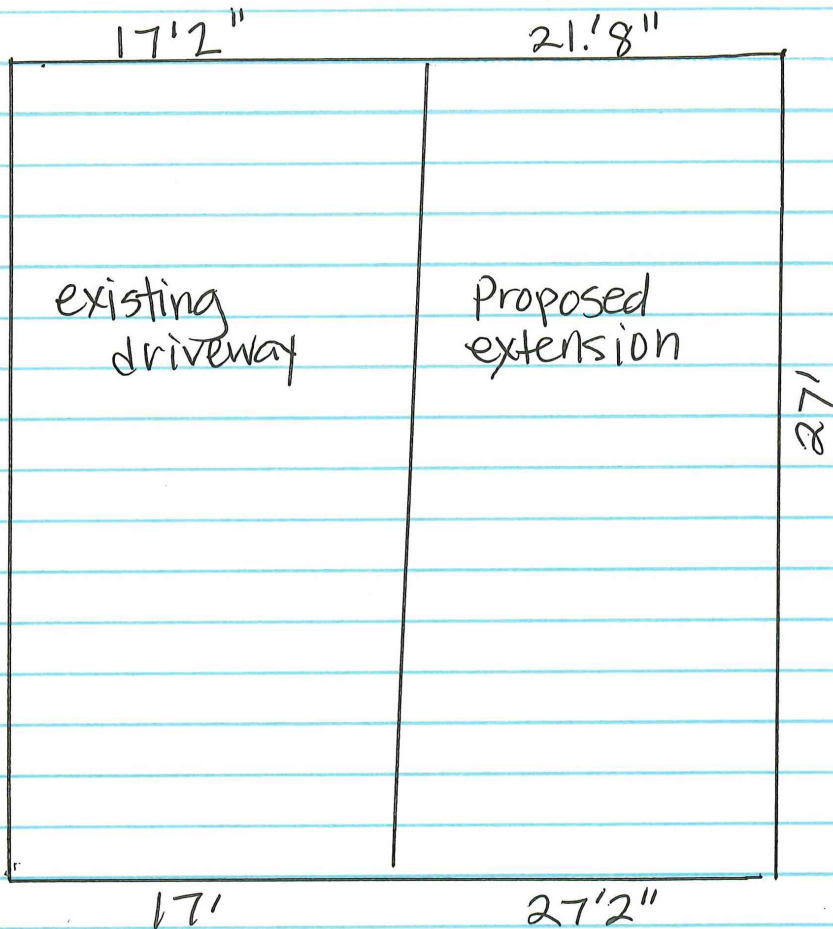 17'2"
21.'8"
existing
driveway
Proposed
extension
27'
17'
27'2"